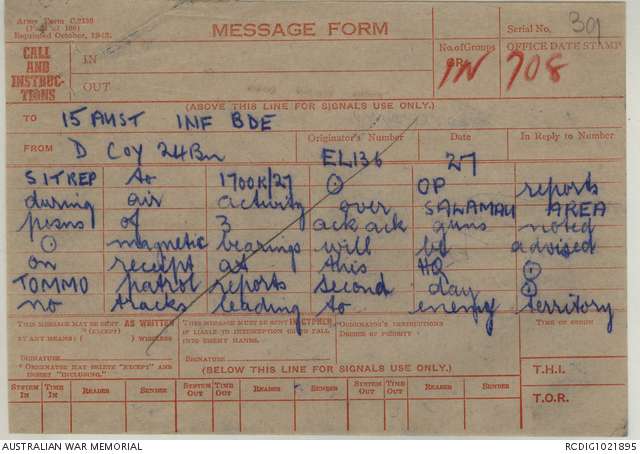 Army Form C.2136
(Pad of 100)
Reprinted October, 1942.
MESSAGE FORM
Serial No. 39
CALL
AND
INSTRUC-
TIONS
IN
OUT
No. of Groups
GR.
IN 708
OFFICE DATE STAMP
(ABOVE THIS LINE FOR SIGNALS USE ONLY.)
TO 15 AUST INF BDE
FROM D Coy 24 Bn
Originator's Number EL136
Date 27
In Reply to Number
SITREP to 1700K/27 ⊙ OP reports
during air activity over SALAMAU AREA
posns of 3 ack ack guns noted
⊙ magnetic bearings will be advised
on receipt at this HQ ⊙
TOMMO patrol reports second day ⊙
no tracks leading to enemy territory
THIS MESSAGE MAY BE SENT AS WRITTEN
(EXCEPT)
BY ANY MEANS ( ) WIRELESS
SIGNATURE
* ORIGINATOR MAY DELETE "EXCEPT" AND
INSERT "INCLUDING."
THIS MESSAGE MUST BE SENT IN CYPHER
IF LIABLE TO INTERCEPTION OR TO FALL
INTO ENEMY HANDS.
SIGNATURE
ORIGINATOR'S INSTRUCTIONS
DEGREE OF PRIORITY
TIME OF ORIGIN
(BELOW THIS LINE FOR SIGNALS USE ONLY.)
T.H.I.
T.O.R.
SYSTEM IN TIME IN READER SENDER SYSTEM OUT TIME OUT READER SENDER SYSTEM OUT TIME OUT READER SENDER
AUSTRALIAN WAR MEMORIAL
RCDIG1021895